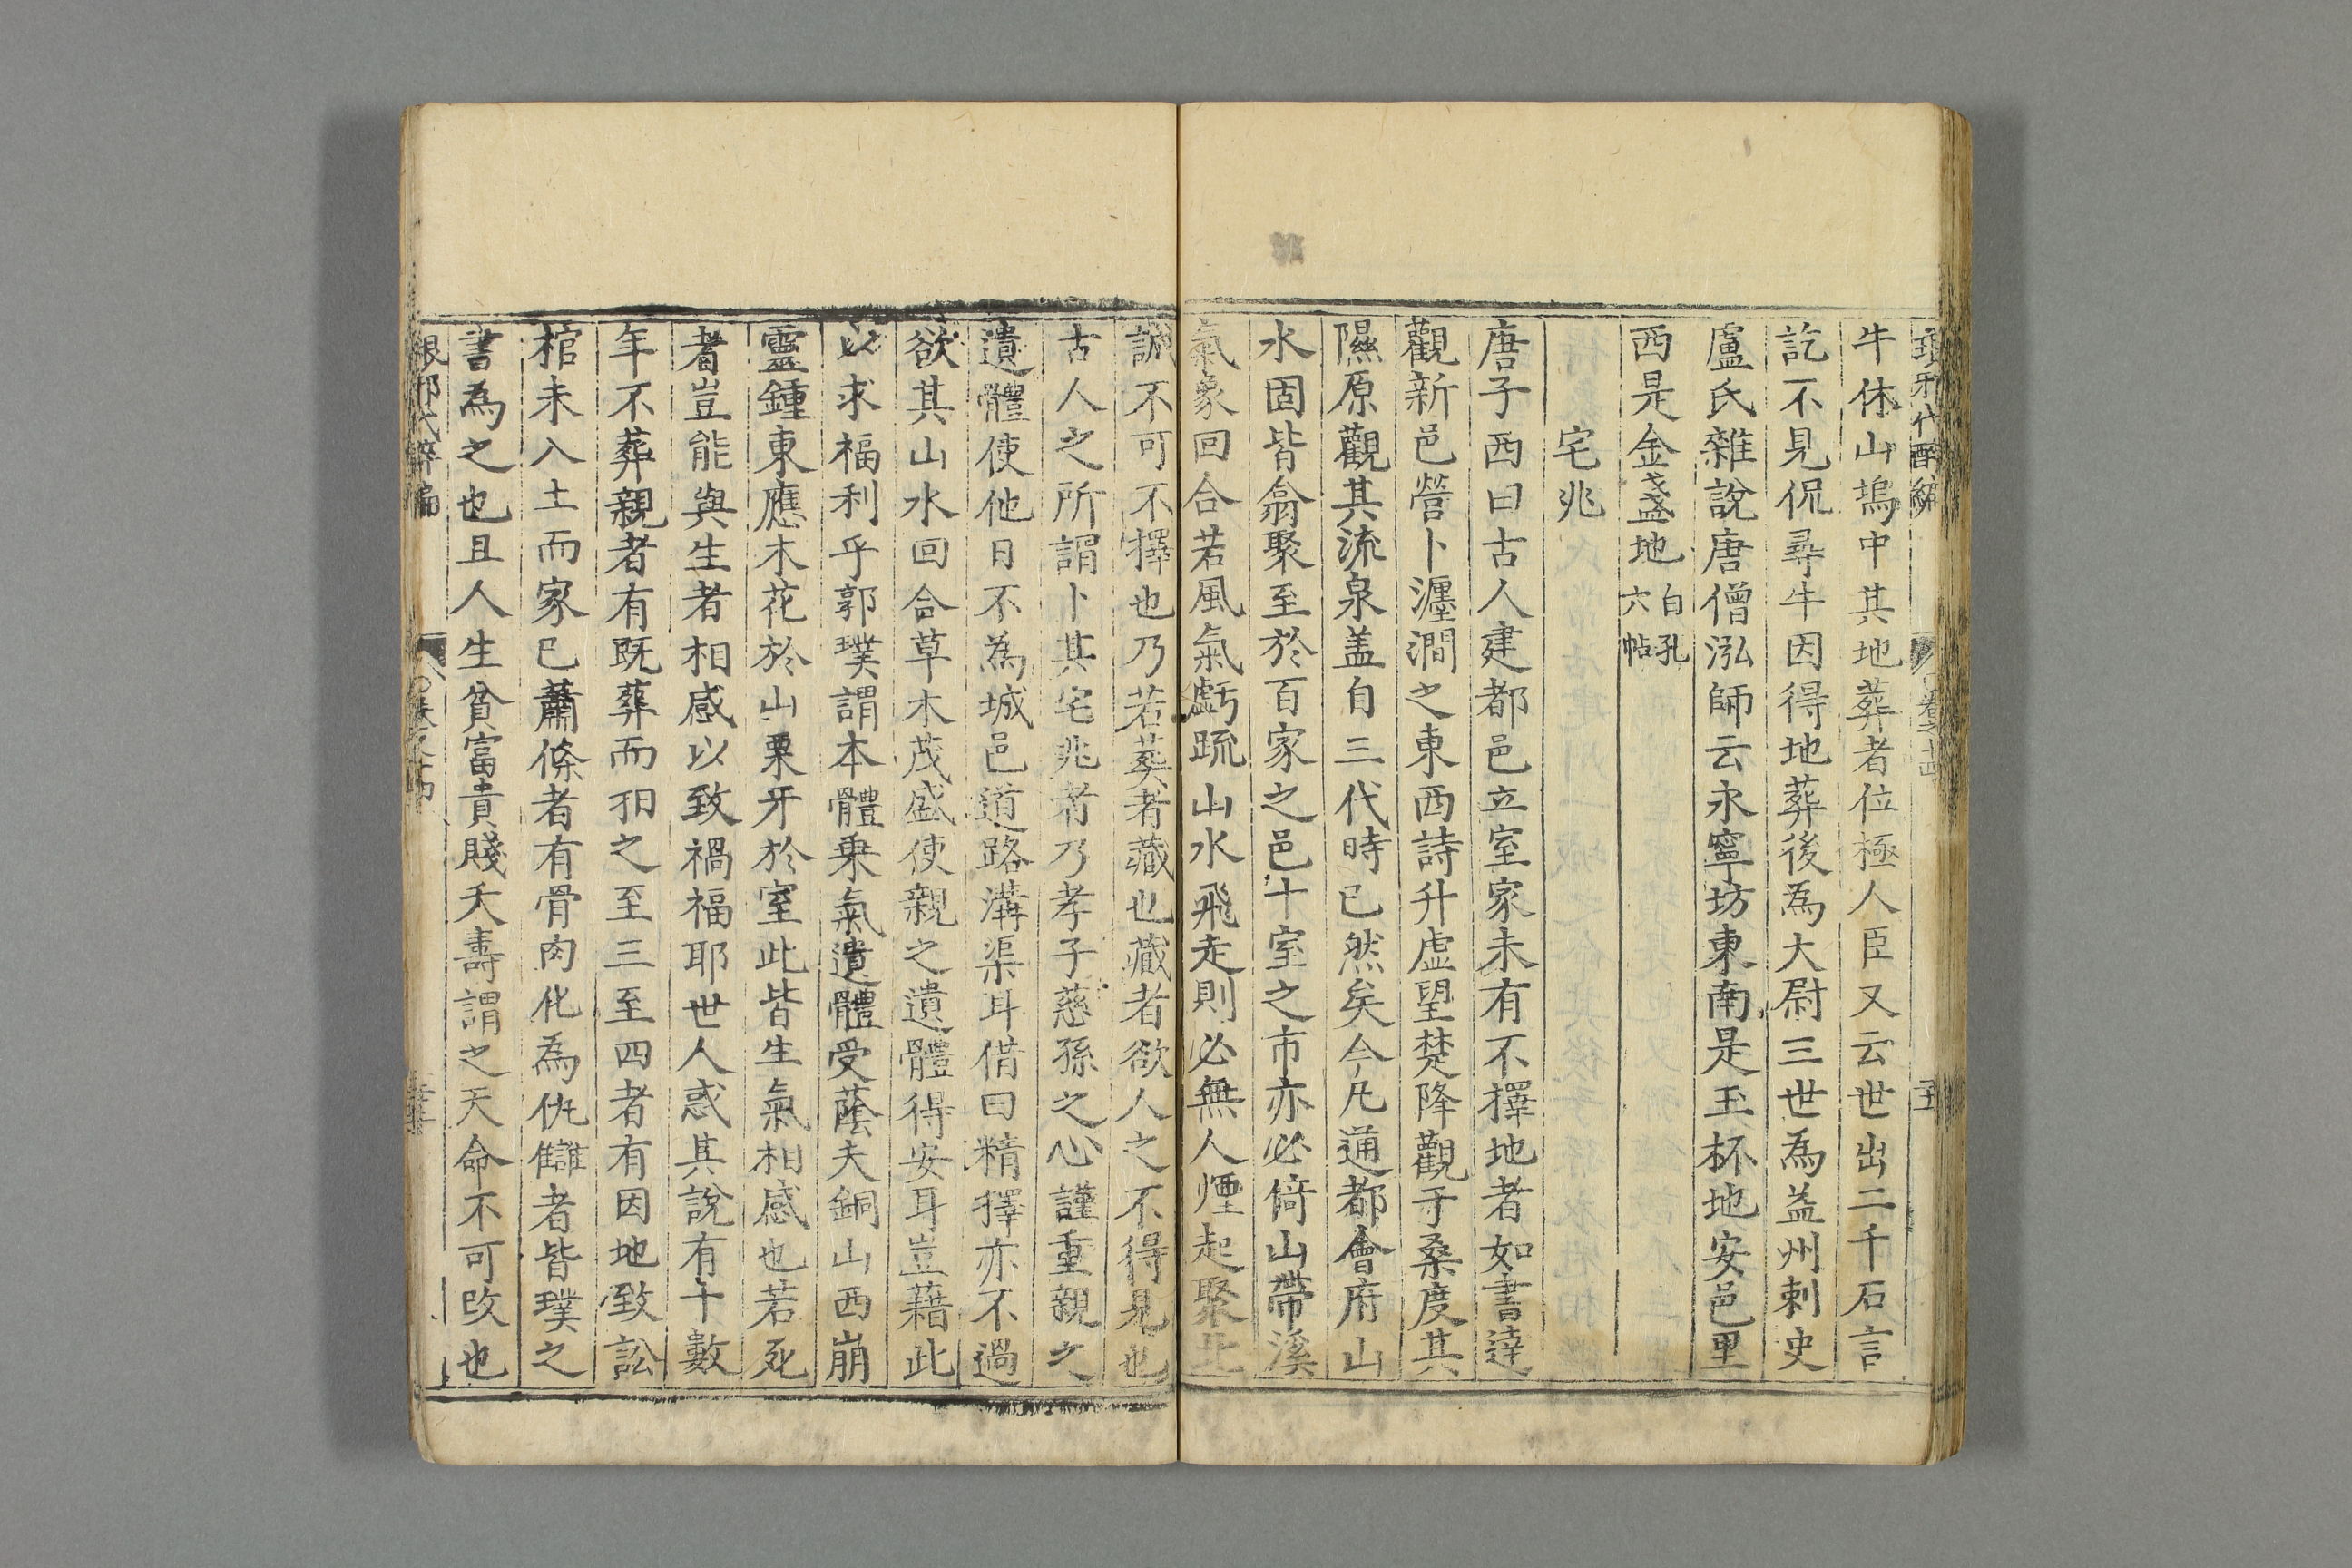 牛休山塢中其地葬者位極人臣又云世出二千石言
訖不見侃尋牛因得地葬後為大尉三世為益州刺史
盧氏雜說唐僧泓師云永寧坊東南是玉杯地安邑里
西是金盞地白孔六帖
宅兆
唐子西曰古人建都邑立室家未有不擇地者如書達
觀新邑營卜瀍澗之東西詩升虛望楚降觀于桑度其
隰原觀其流泉盖自三代時已然矣今凡通都會府山
水固皆翕聚至於百家之邑十室之市亦必倚山帶溪
氣象回合若風氣虧疏山水飛走則必無人煙起聚此
誠不可不擇也乃若葬者藏也藏者欲人之不得見也
古人之所謂卜其宅兆者乃孝子慈孫之心謹重親之
遺體使他日不為城邑道路溝渠耳借曰精擇亦不過
欲其山水回合草木茂盛使親之遺體得安耳豈藉此
以求福利乎郭璞謂本體乗氣遺體受蔭夫銅山西崩
靈鍾東應木花於山栗牙於室此皆生氣相感也若死
者豈能與生者相感以致禍福耶世人惑其說有十數
年不葬親者有既葬而𢪛之至三至四者有因地致訟
棺未入土而家已蕭條者有骨肉化為仇讎者皆璞之
書為之也且人生貧富貴賤夭壽謂之天命不可改也